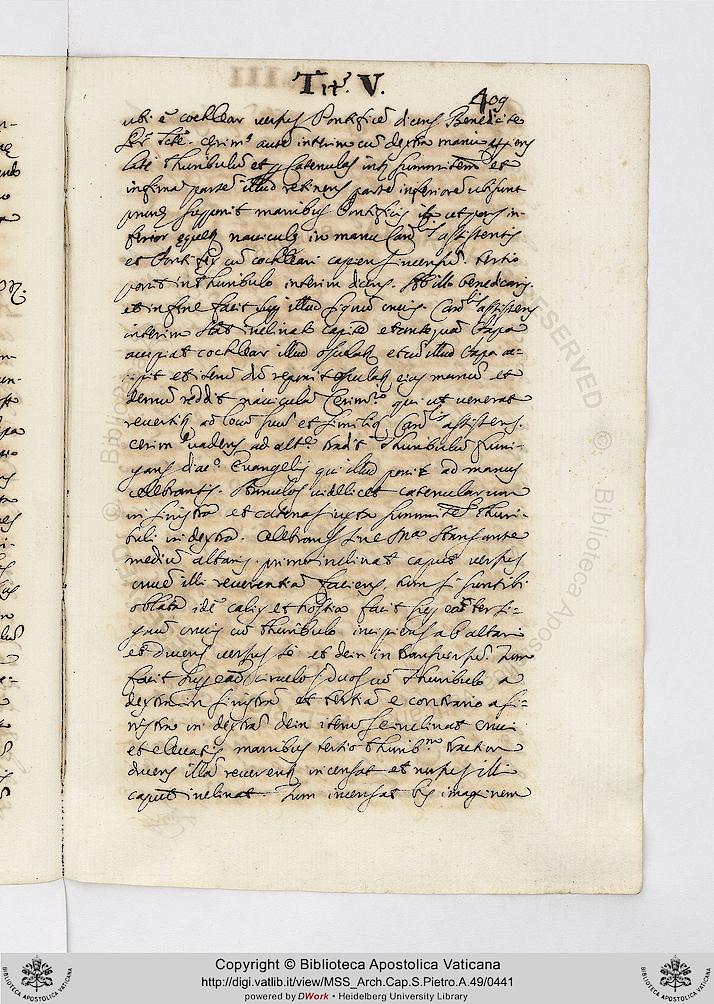 Tit. V.
409
ubi e cochlear versus Pontifice dicens Benedicite
Cerim.s ante interim cu dextra manu
late thuribulu et p catenulas iuxta summitem et
infima parte illud retinens parte inferiore ubi sunt
prunes supponit manibus Pontificis ut pars in-
ferior navicule in manu Card.lis assistentis
et Pontifex cu cochleari capiens incensu tertio
ponit in thuribulo interim dicens Ab illo benedicaris
et in fine facit sup illud signu crucis. Card.lis assistens
interim stat inclinato capite et antequam Papa
accipiat cochlear illud osculat et cu illud Papa ac-
cipit et iteru du reponit osculat eius manu et
demu reddit navicula Cerim.rio qui ut venerat
revertit ad locu suu et similiter Card.lis assistens.
Cerim. vadens ad alt. tradit thuribulu fumi-
gans diac.o Evangelij qui illud ponit ad manus
celebrantis. Annulos videlicet catenularum
in sinistra et catenas iuxta summitate thuri-
buli in dextra. Celebrans sine stans ante
mediu altaris primo inclinat caput versus
cruce illi reverentia faciens, tum si sunt ibi
oblata ide calix et hostia facit sup ea ter si-
gnu crucis cu thuribulo incipiens ab altari
et ducens versus se et dein in transversu. Tum
facit sup ead circulos duos cu thuribulo a
dextra in sinistra et tertiu e contrario a si-
nistra in dextra dein iteru se inclinat cruci
et elevatis manibus tertio thurib.m tractim
ducens illa reverent incensat et rursus illi
caput inclinat. Tum incensat bis imaginem
Copyright © Biblioteca Apostolica Vaticana
http://digi.vatlib.it/view/MSS_Arch.Cap.S.Pietro.A.49/0441
powered by DWork • Heidelberg University Library